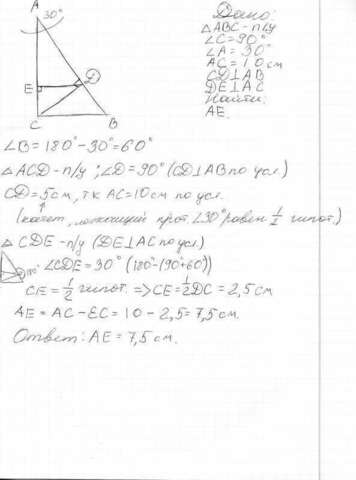 A
30°
E
D
C
B
Дано:
△ABC - п/у
∠C = 90°
∠A = 30°
AC = 10 см
CD⊥AB
DE⊥AC
Найти:
AE.
∠B = 180° - 30° = 60°
△ACD - п/у; ∠D = 90° (CD⊥AB по усл.)
CD = 5 см, т.к AC = 10 см по усл.
(катет, лежащий прот. ∠30° равен 1/2 гипот.)
△ CDE - п/у (DE⊥AC по усл)
∠CDE = 30° (180° - (90° + 60°))
CE = 1/2 гипот. => CE = 1/2 DC = 2,5 см
AE = AC - EC = 10 - 2,5 = 7,5 см.
Ответ: AE = 7,5 см.